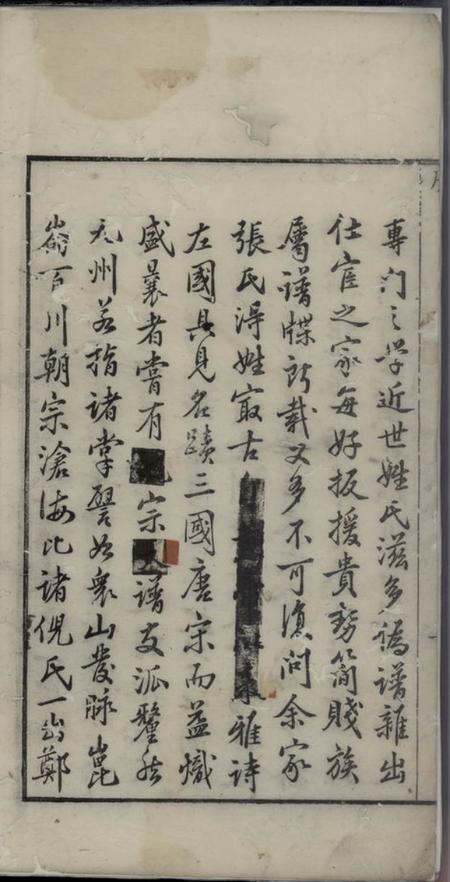 專門之學近世姓氏滋多譌譜雜出
仕宦之家每好扳援貴勢簡賤族
屬譜牒所載又多不可復問余家
張氏得姓最古雅詩
左國具見名蹟三國唐宋而益熾
盛曩者嘗有宗譜支派釐然
九州若指諸掌譬如衆山發脉崑
崙百川朝宗滄海比諸倪氏一出鄭